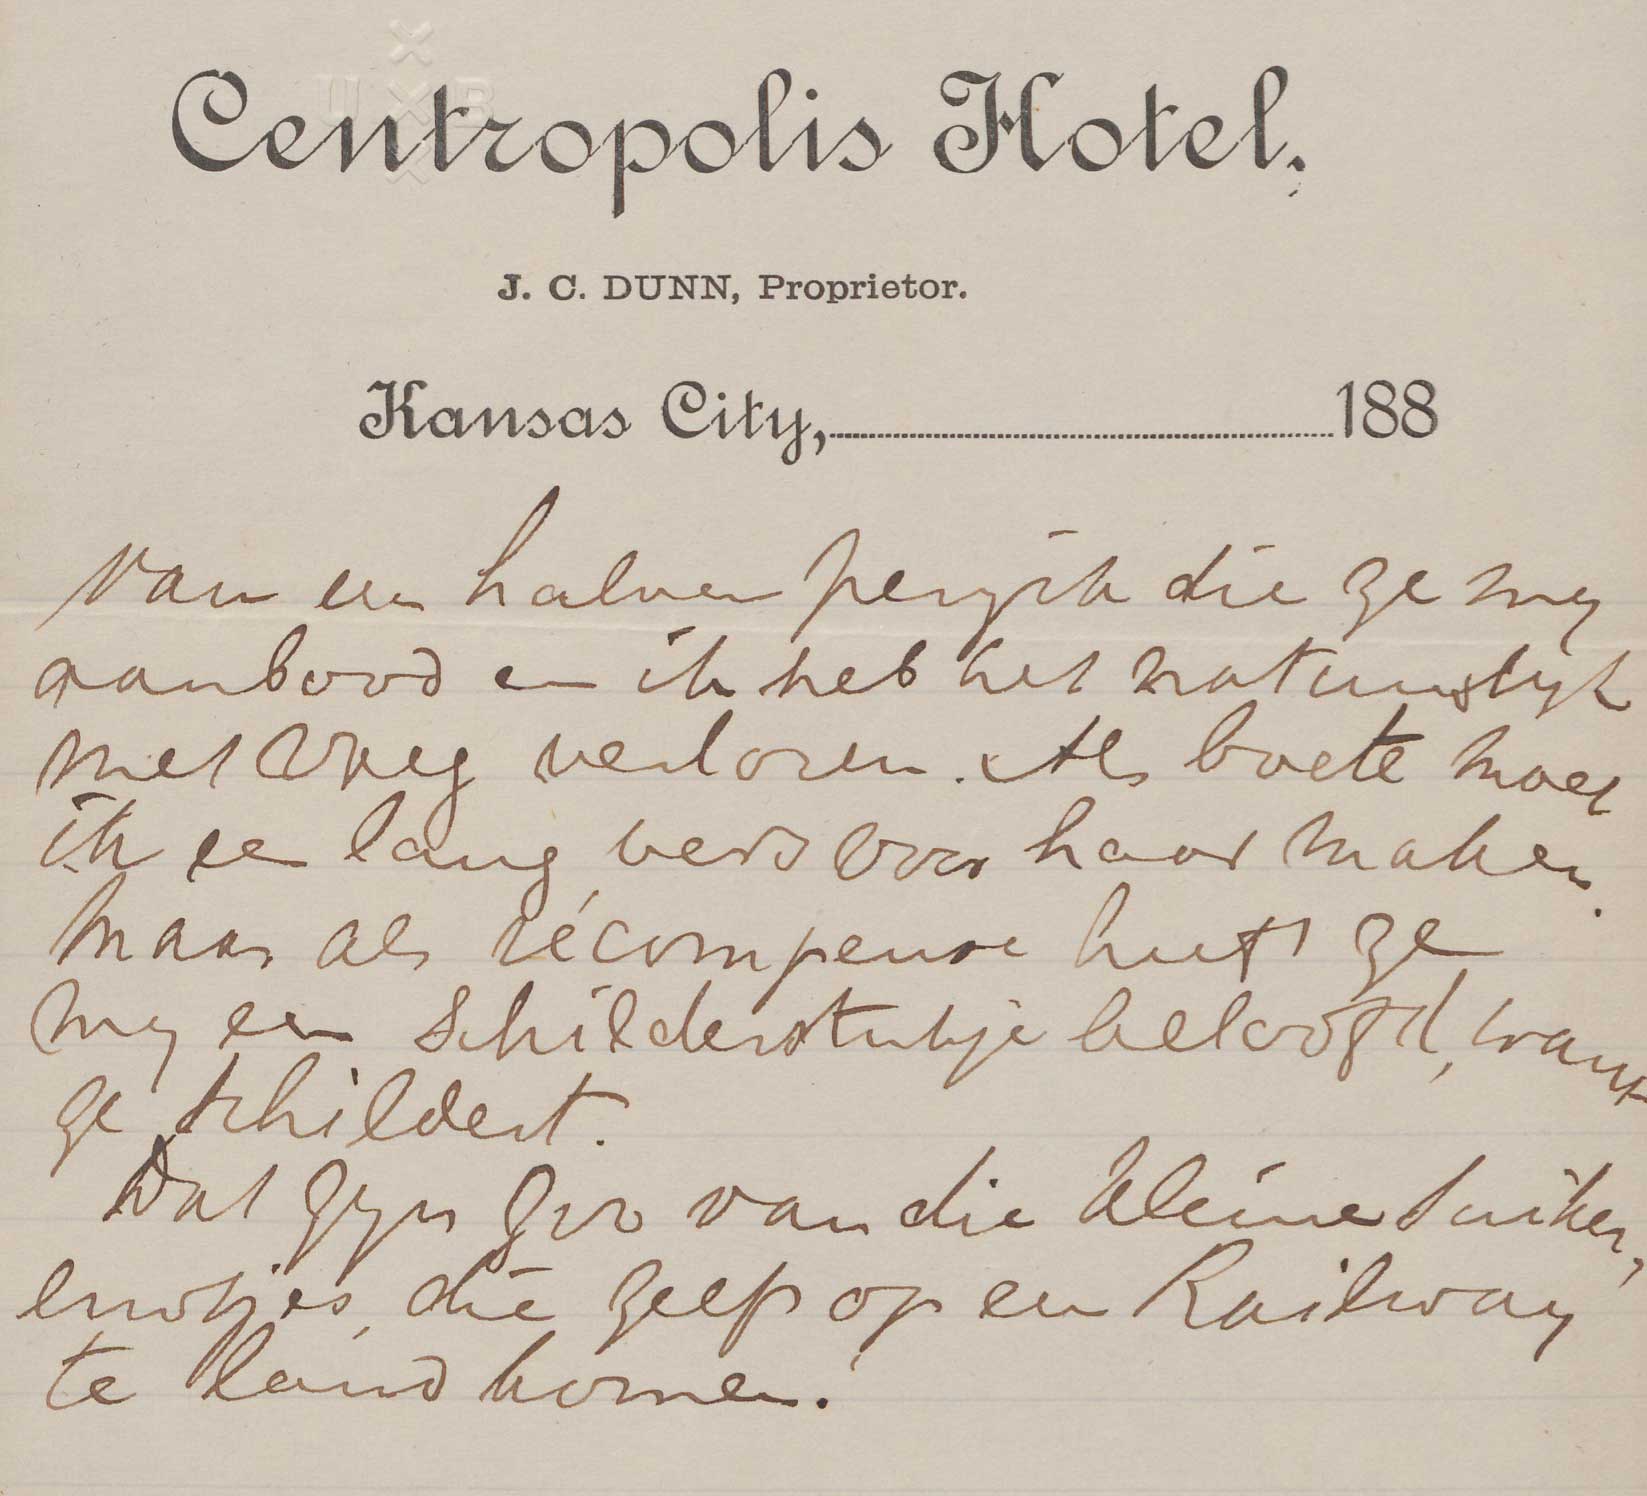 U B
Centropolis Hotel.
J. C. DUNN, Proprietor.
Kansas City, 188
van een halven perzik die ze my
aanbood en ik heb het natuurlyk
met vreug verloren. Als boete moet
ik een lang vers voor haar maken.
maar als récompense heeft ze
my een schilderstukje beloofd, want
ze schildert.
Dat zyn zoo van die kleine suiker,
erwtjes, die zelfs op een Railway
te land komen.